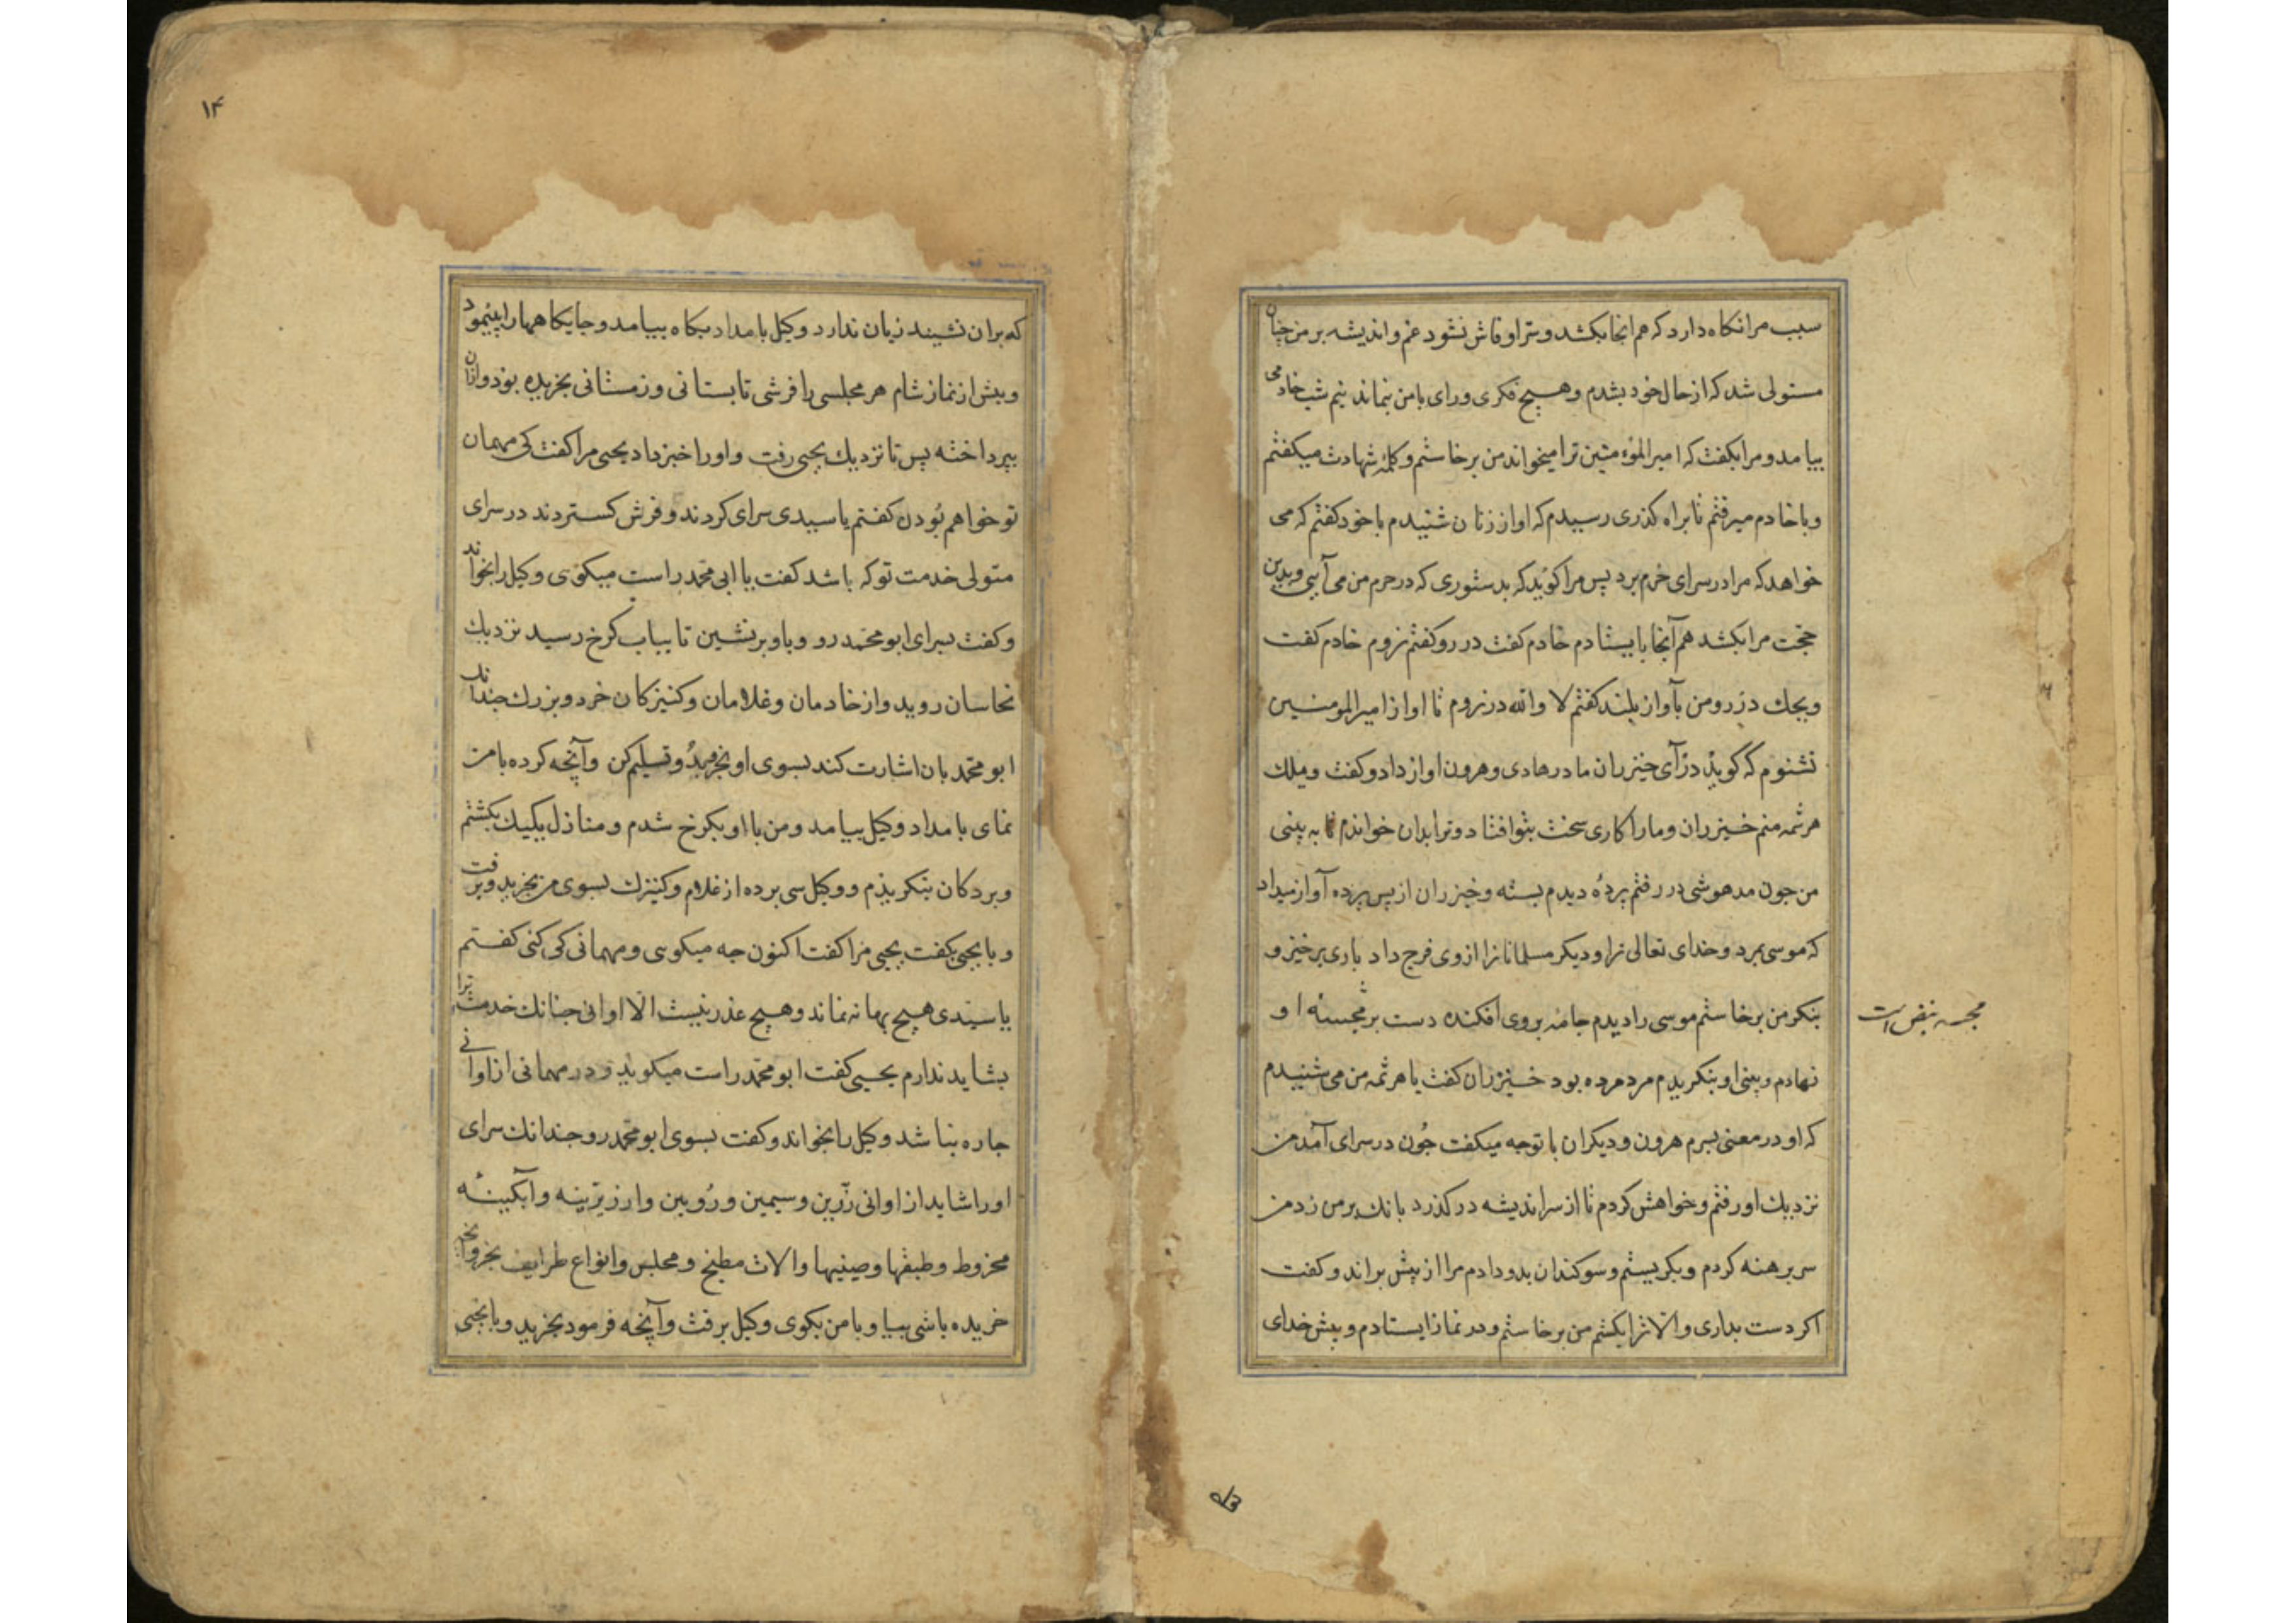 سبب مرا نکاه دارد که هم انجا بکشد و سر او فاش نشود غم و اندیشه بر من چنان
مستولی شد که از حال خود بشدم و هیچ فکری و رای با من نماند نیم شب خادمی
بیامد و مرا بکفت که امیر المؤمنین ترا میخواند من برخاستم و کلمهٔ شهادت میکفتم
و با خادم میرفتم تا براه کذری رسیدم که اواز زنان شنیدم با خود کفتم که می
خواهد که مرا در سرای حرم برد پس مرا کوید که بدستوری که در حرم من می آیی و بدین
حجت مرا بکشد هم آنجا بایستادم خادم کفت در رو کفتم نروم خادم کفت
ویحک در رو من بآواز بلند کفتم لا والله در نروم تا اواز امیر المومنین
نشنوم که کوید در آی خیزران مادر هادی و هرون اواز داد و کفت ویلک
هرثمه منم خیزران و ما را کاری سخت بتو افتاد و ترا بدان خواندم تا به بینی
من جون مدهوشی در رفتم پردهٔ دیدم بسته و خیزران از پس پرده آواز میداد
که موسی بمرد و خدای تعالی ترا و دیکر مسلمانانرا از وی فرج داد باری برخیز و
بنکر من برخاستم موسی را دیدم جامه بروی افکنده دست بر مجسهٔ او
مجسه نبض است
نهادم و بینی او بنکریدم مرد مرده بود خیزران کفت یا هرثمه من می شنیدم
که او در معنی پسرم هرون و دیکران با تو جه میکفت جُون در سرای آمد من
نزدیک او رفتم و خواهش کردم تا از سر اندیشه در کذرد بانک بر من زد من
سر برهنه کردم و بکریستم و سوکندان بدو دادم مرا از پیش براند و کفت
اکر دست بداری و الا ترا بکشم من برخاستم و در نماز ایستادم و پیش خدای
۱۴
که بران نشیند زیان ندارد وکیل بامداد بکاه بیامد و جایکاهها را بپیمود
و پیش از نماز شام هر مجلسی را فرشی تابستانی و زمستانی بخریده بود و ازان
بپرداخته پس تا نزدیک یحیی رفت و اورا خبر داد یحیی مرا کفت کی مهمان
تو خواهم بُودن کفتم یا سیدی سرای کردند و فرش کستردند در سرای
متولی خدمت تو که باشد کفت یا ابی محمد راست میکوی وکیل را بخواند
و کفت بسرای ابو محمد رو و باو بر نشین تا بباب کرخ رسید نزدیک
نخاسان روید و از خادمان و غلامان و کنیزکان خرد و بزرک جندانک
ابو محمد بان اشارت کند بسوی او بخرید و تسلیم کن و آنچه کرده با من
نمای بامداد وکیل بیامد و من با او بکرخ شدم و منازل یکیک بکشتم
و بردکان بنکریدم و وکیل سی برده از غلام و کنیزک بسوی من بخرید و برفت
و با یحیی بکفت یحیی مرا کفت اکنون جه میکوی و مهمانی کی کنی کفتم
یا سیدی هیچ بهانه نماند و هیچ عذر نیست الّا اوانی جنانک خدمت ترا
بشاید ندارم یحیی کفت ابو محمد راست میکوید و در مهمانی از اوانی
جاره نباشد وکیل را بخواند و کفت بسوی ابو محمد رو جندانک سرای
اورا شاید از اوانی زرّین و سیمین و رُویین و ارزیزینه و آبکینهٔ
مخروط و طبقها و صینیها و الات مطبخ و مجلس و انواع طرایف بخر و آنچه
خریده باشی بیا و با من بکوی وکیل برفت و آنچه فرمود بخرید و با یحیی